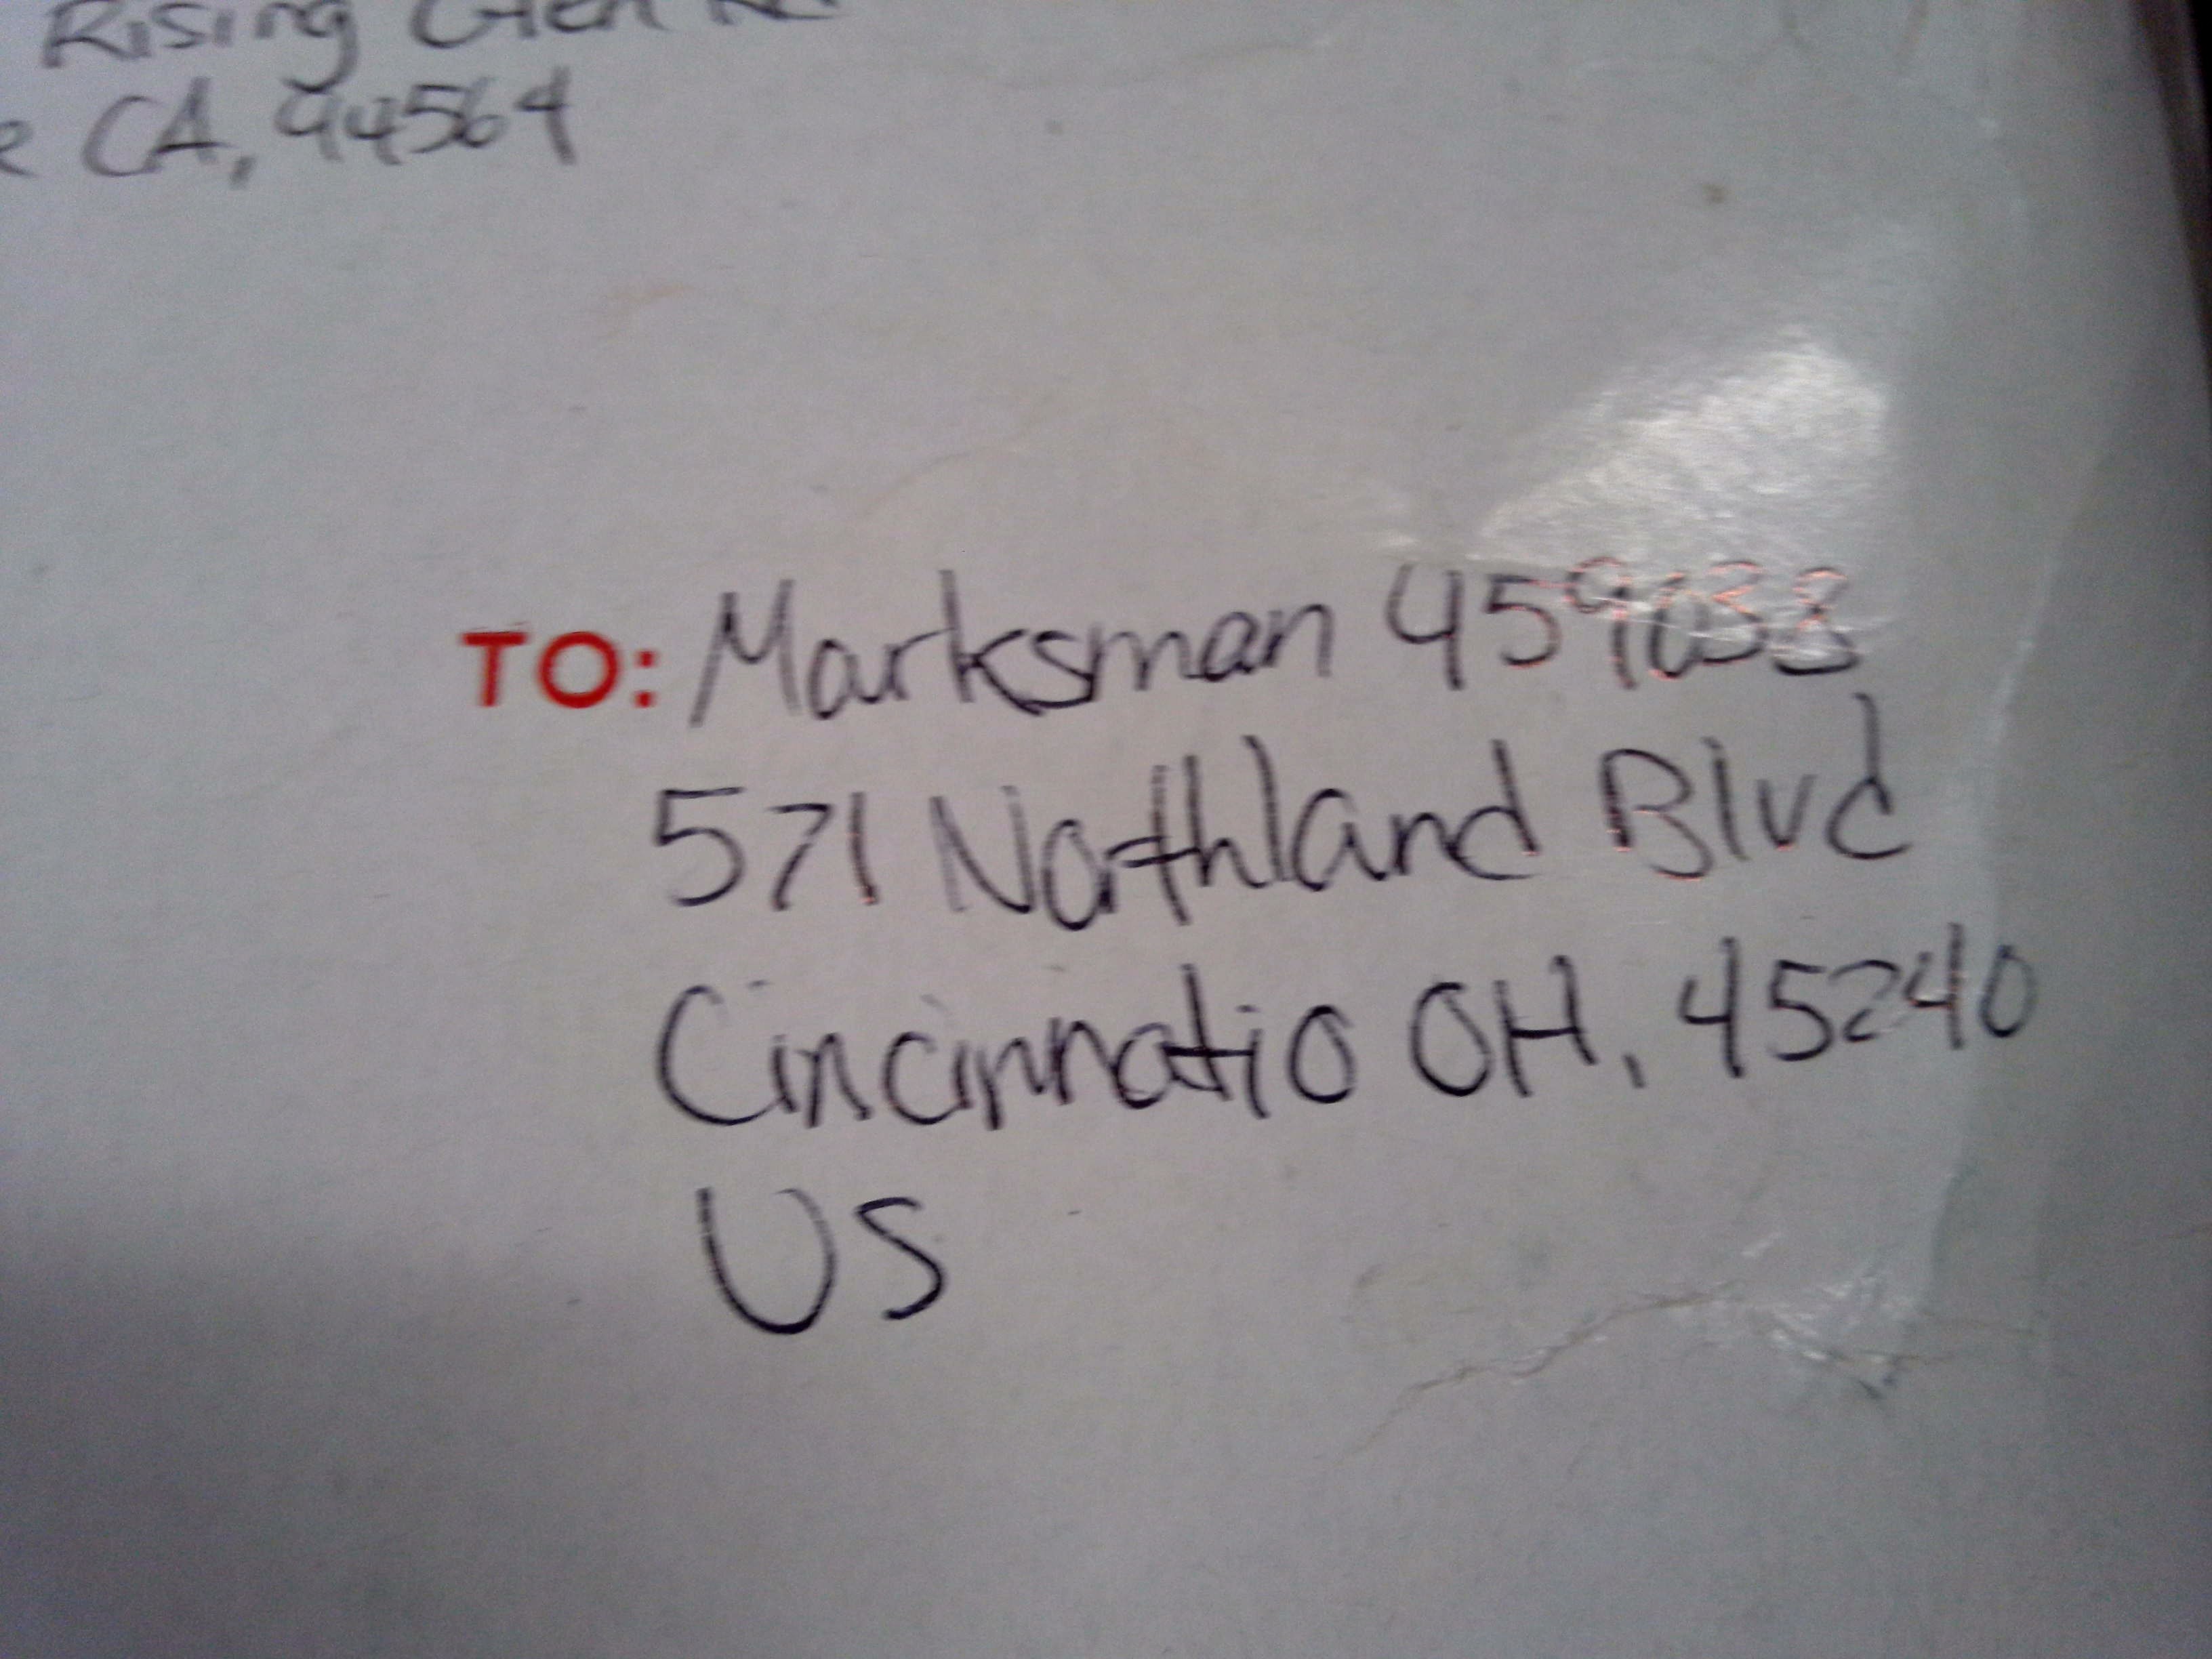 Rising Glen Rd
CA, 94564
TO: Marksman 459038
571 Northland Blvd
Cincinnatio OH, 45240
US